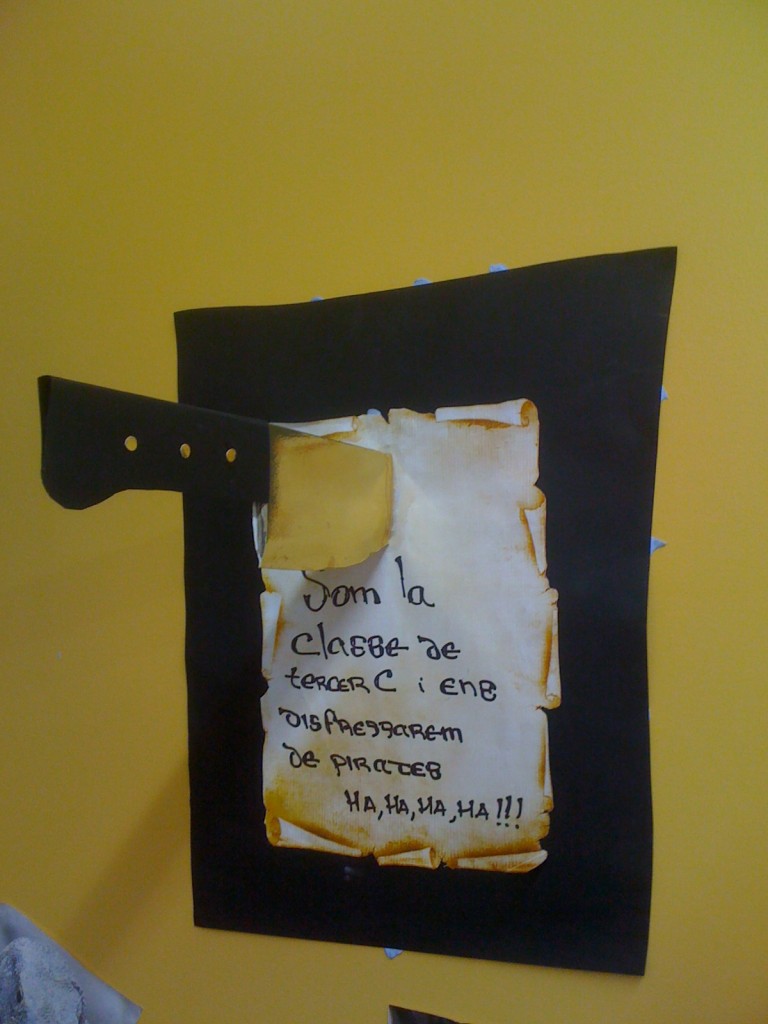 Som la
classe de
tercer C i ens
disfressarem
de pirates
HA, HA, HA, HA!!!